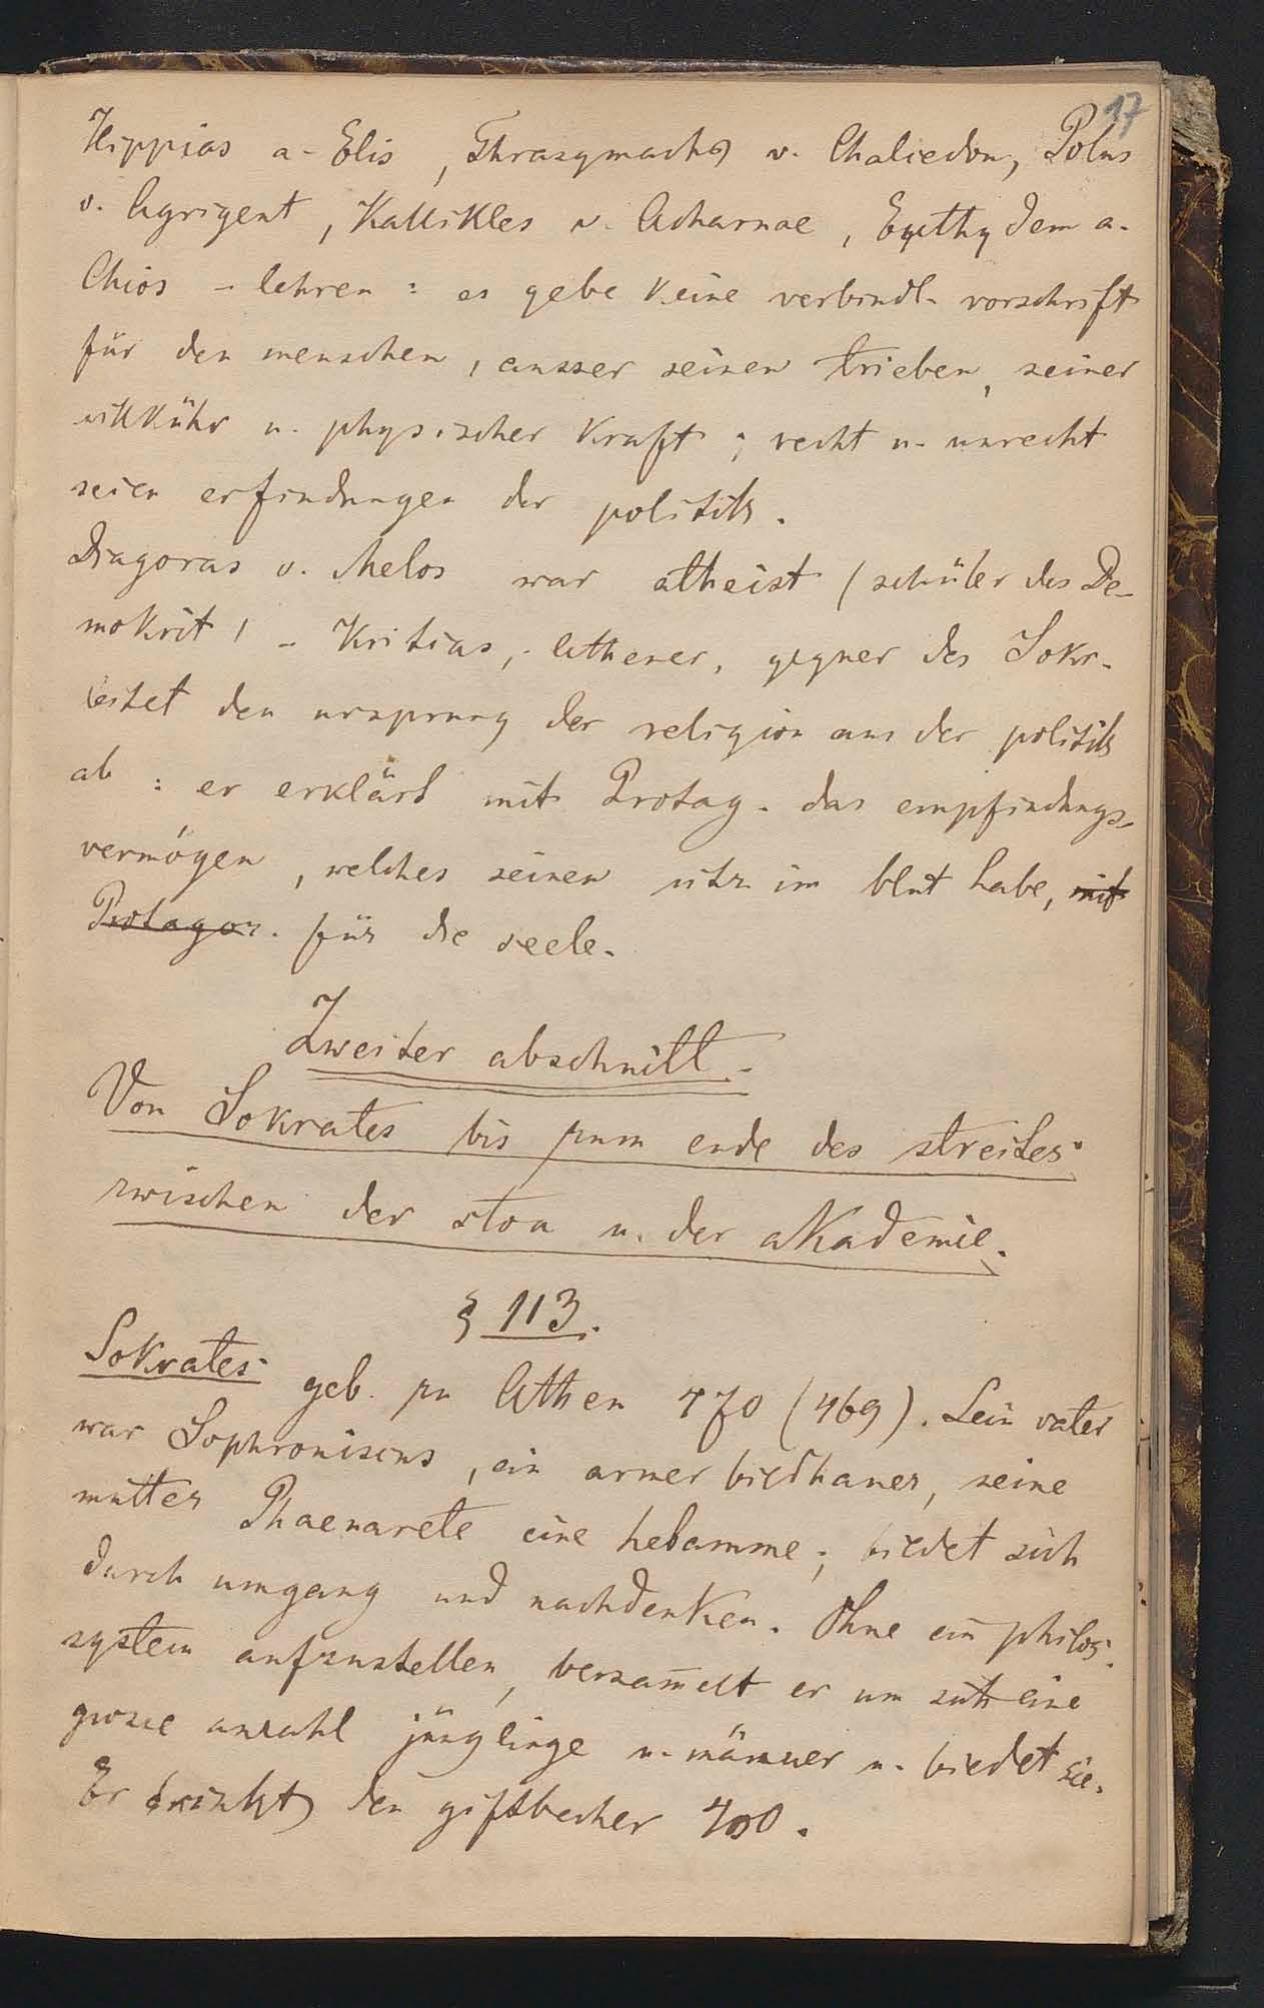 17
Hippias a. Elis, Thrasymachos v. Chalcedon, Polus
v. Agrigent, Kallikles v. Acharnae, Euthydem a.
Chios – lehren: es gebe keine verbindl. vorschrift
für den menschen, ausser seinen trieben, seiner
willkühr u. physischer Kraft; recht u. unrecht
seien erfindungen der politik.
Diagoras v. Melos war atheist (schüler des De-
mokrit) – Kritias, Athener, gegner des Sokr.
leitet den ursprung der religion aus der politik
ab: er erklärt mit Protag. das empfindungs-
vermögen, welches seinen sitz im blut habe, mit
Protagor. für die seele.
Zweiter abschnitt.
Von Sokrates bis zum ende des streites
zwischen der stoa u. der akademie.
§ 113.
Sokrates geb. zu Athen 470 (469). Sein vater
war Sophroniscus, ein armer bildhauer, seine
mutter Phaenarete eine hebamme; bildet sich
durch umgang und nachdenken. Ohne ein philos.
system aufzustellen, versam̄elt er um sich eine
grosse anzahl jünglinge u. männer u. bildet sie.
Er trinkt den giftbecher 400.